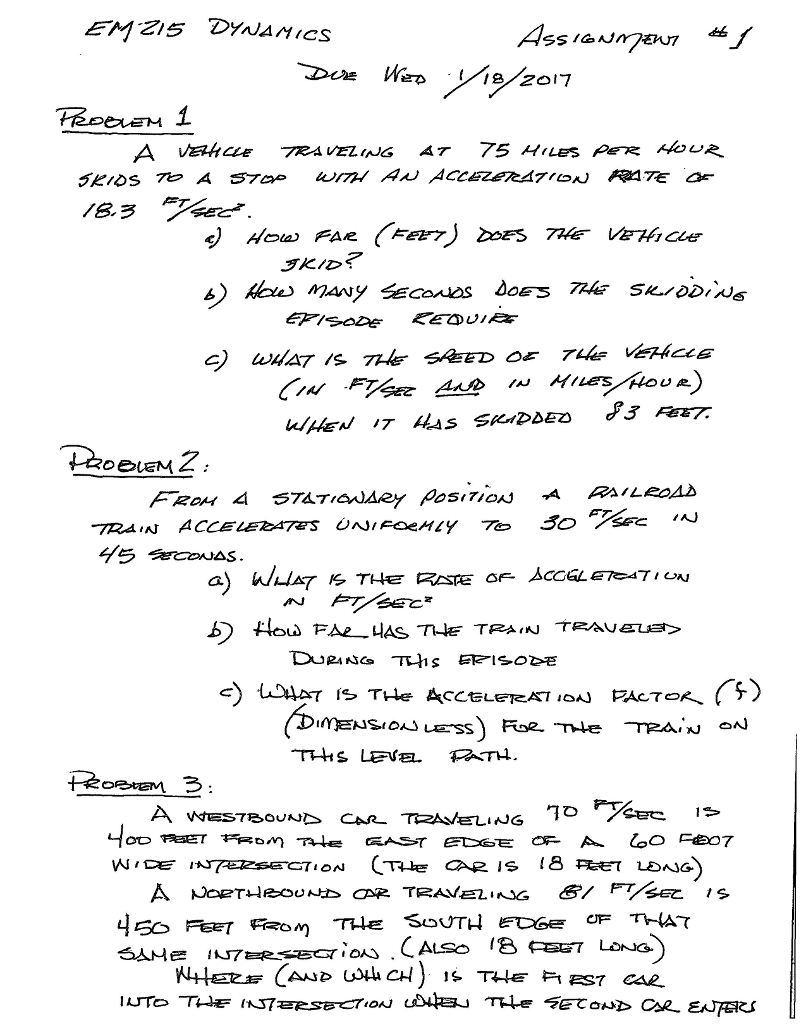 EM 215 DYNAMICS ASSIGNMENT #1
DUE WED 1/18/2017
PROBLEM 1
A VEHICLE TRAVELING AT 75 MILES PER HOUR
SKIDS TO A STOP WITH AN ACCELERATION RATE OF
18.3 FT/SEC².
a) HOW FAR (FEET) DOES THE VEHICLE
SKID?
b) HOW MANY SECONDS DOES THE SKIDDING
EPISODE REQUIRE
c) WHAT IS THE SPEED OF THE VEHICLE
(IN FT/SEC AND IN MILES/HOUR)
WHEN IT HAS SKIDDED 83 FEET.
PROBLEM 2:
FROM A STATIONARY POSITION A RAILROAD
TRAIN ACCELERATES UNIFORMLY TO 30 FT/SEC IN
45 SECONDS.
a) WHAT IS THE RATE OF ACCELERATION
IN FT/SEC²
b) HOW FAR HAS THE TRAIN TRAVELED
DURING THIS EPISODE
c) WHAT IS THE ACCELERATION FACTOR (f)
(DIMENSIONLESS) FOR THE TRAIN ON
THIS LEVEL PATH.
PROBLEM 3:
A WESTBOUND CAR TRAVELING 70 FT/SEC IS
400 FEET FROM THE EAST EDGE OF A 60 FOOT
WIDE INTERSECTION (THE CAR IS 18 FEET LONG)
A NORTHBOUND CAR TRAVELING 81 FT/SEC IS
450 FEET FROM THE SOUTH EDGE OF THAT
SAME INTERSECTION. (ALSO 18 FEET LONG)
WHERE (AND WHICH) IS THE FIRST CAR
INTO THE INTERSECTION WHEN THE SECOND CAR ENTERS